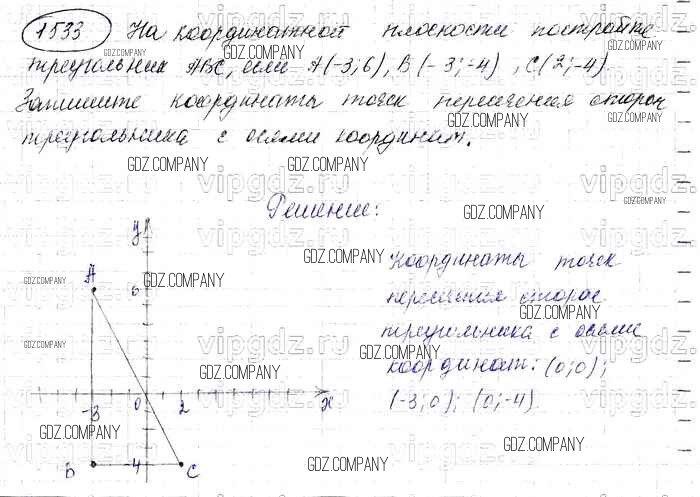 1533 На координатной плоскости постройте
треугольник ABC, если A(-3;6), B(-3;-4), C(2;-4)
Запишите координаты точек пересечения сторон
треугольника с осями координат.
Решение:
Координаты точек
пересечения сторон
треугольника с осями
координат: (0;0);
(-3;0); (0;-4)
y
A
6
-3
0
2
x
B
-4
C
GDZ.COMPANY
vipgdz.ru